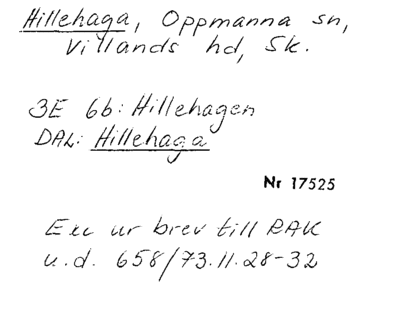 Hillehaga, Oppmanna sn,
Villands hd, Sk.
3E 6b: Hillehagen
DAL: Hillehaga
Nr 17525
Exc ur brev till RAK
u.d. 658/73.11.28-32